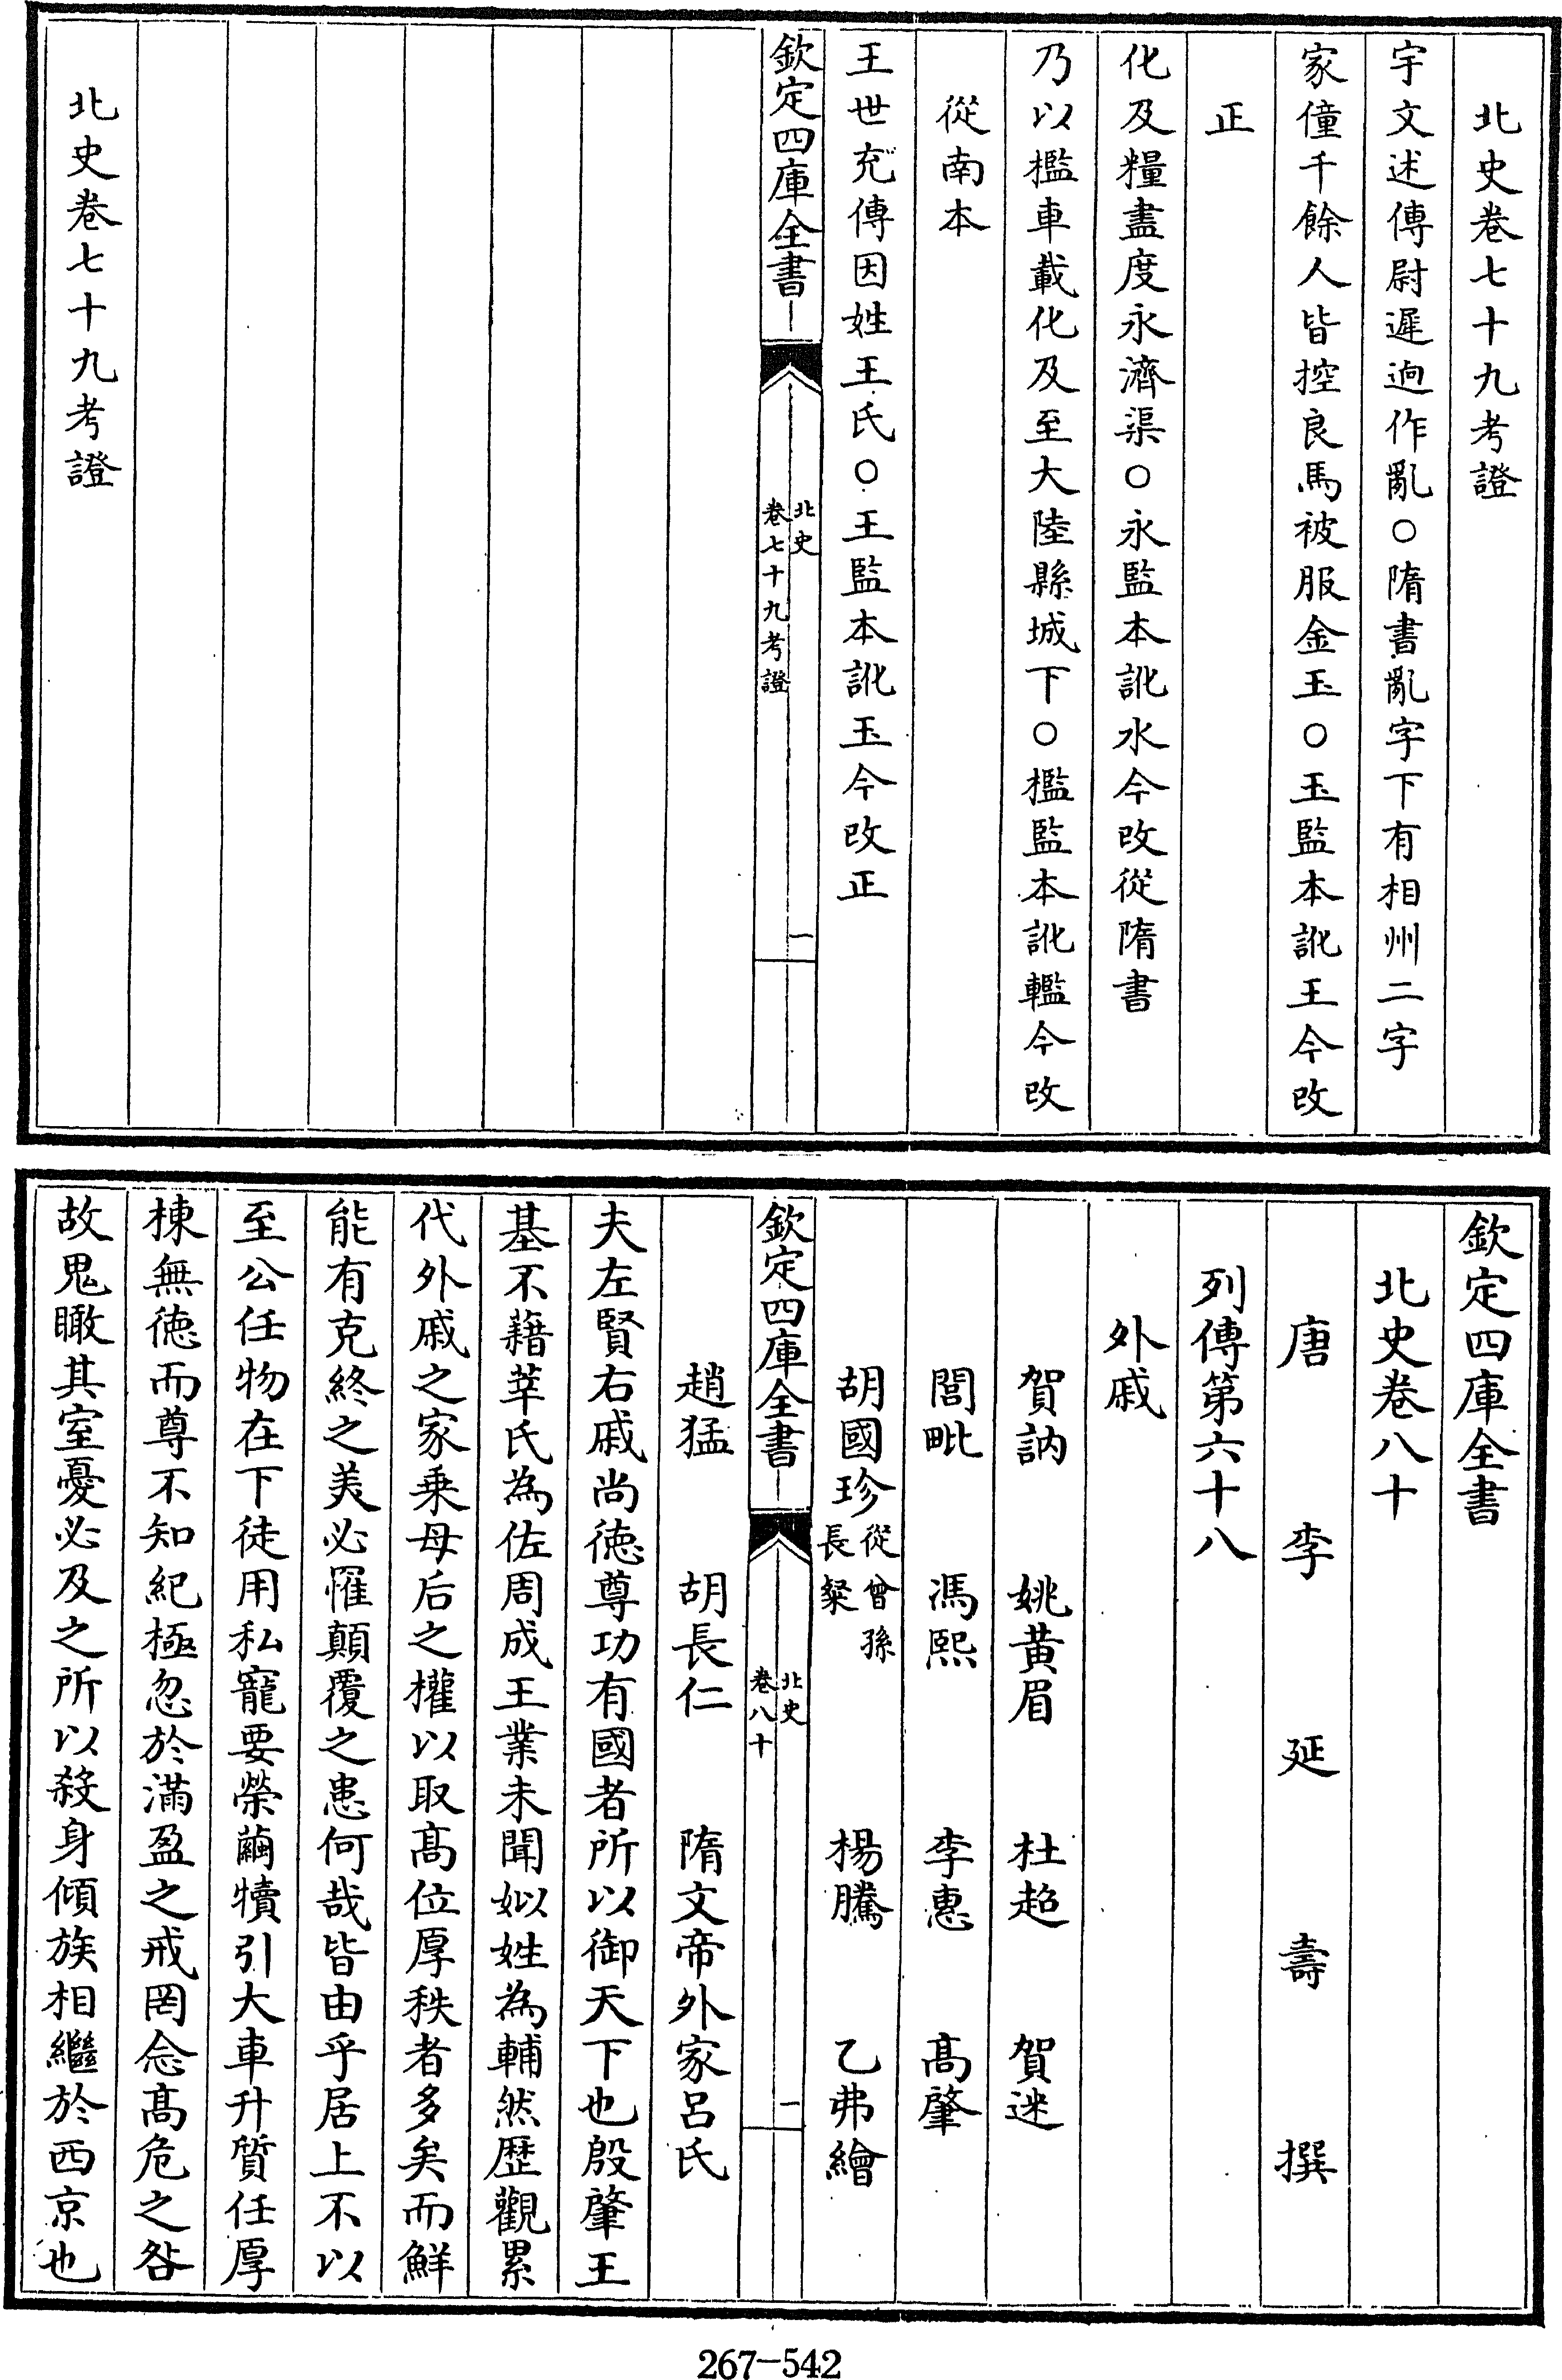 北史卷七十九考證
宇文述傳尉遲逈作亂○隋書亂字下有相州二字
家僮千餘人皆控良馬被服金玉○玉監本訛王今改
正
化及糧盡度永濟渠○永監本訛水今改從隋書
乃以檻車載化及至大陸縣城下○檻監本訛轞今改
從南本
王世充傳因姓王氏○王監本訛玉今改正
欽定四庫全書
北史
卷七十九考證
一
北史卷七十九考證
欽定四庫全書
北史卷八十
唐李延壽撰
列傳第六十八
外戚
賀訥 姚黄眉 杜超 賀迷
閭毗 馮熙 李惠 髙肇
胡國珍 從曾孫長粲 楊騰 乙弗繪
欽定四庫全書
北史
卷八十
一
趙猛 胡長仁 隋文帝外家呂氏
夫左賢右戚尚徳尊功有國者所以御天下也殷肇王
基不藉莘氏為佐周成王業未聞姒姓為輔然歴觀累
代外戚之家乗母后之權以取髙位厚秩者多矣而鮮
能有克終之美必罹顛覆之患何哉皆由乎居上不以
至公任物在下徒用私寵要榮繭犢引大車升質任厚
棟無徳而尊不知紀極忽於滿盈之戒罔念髙危之咎
故鬼瞰其室憂必及之所以殺身傾族相繼於西京也
267-542